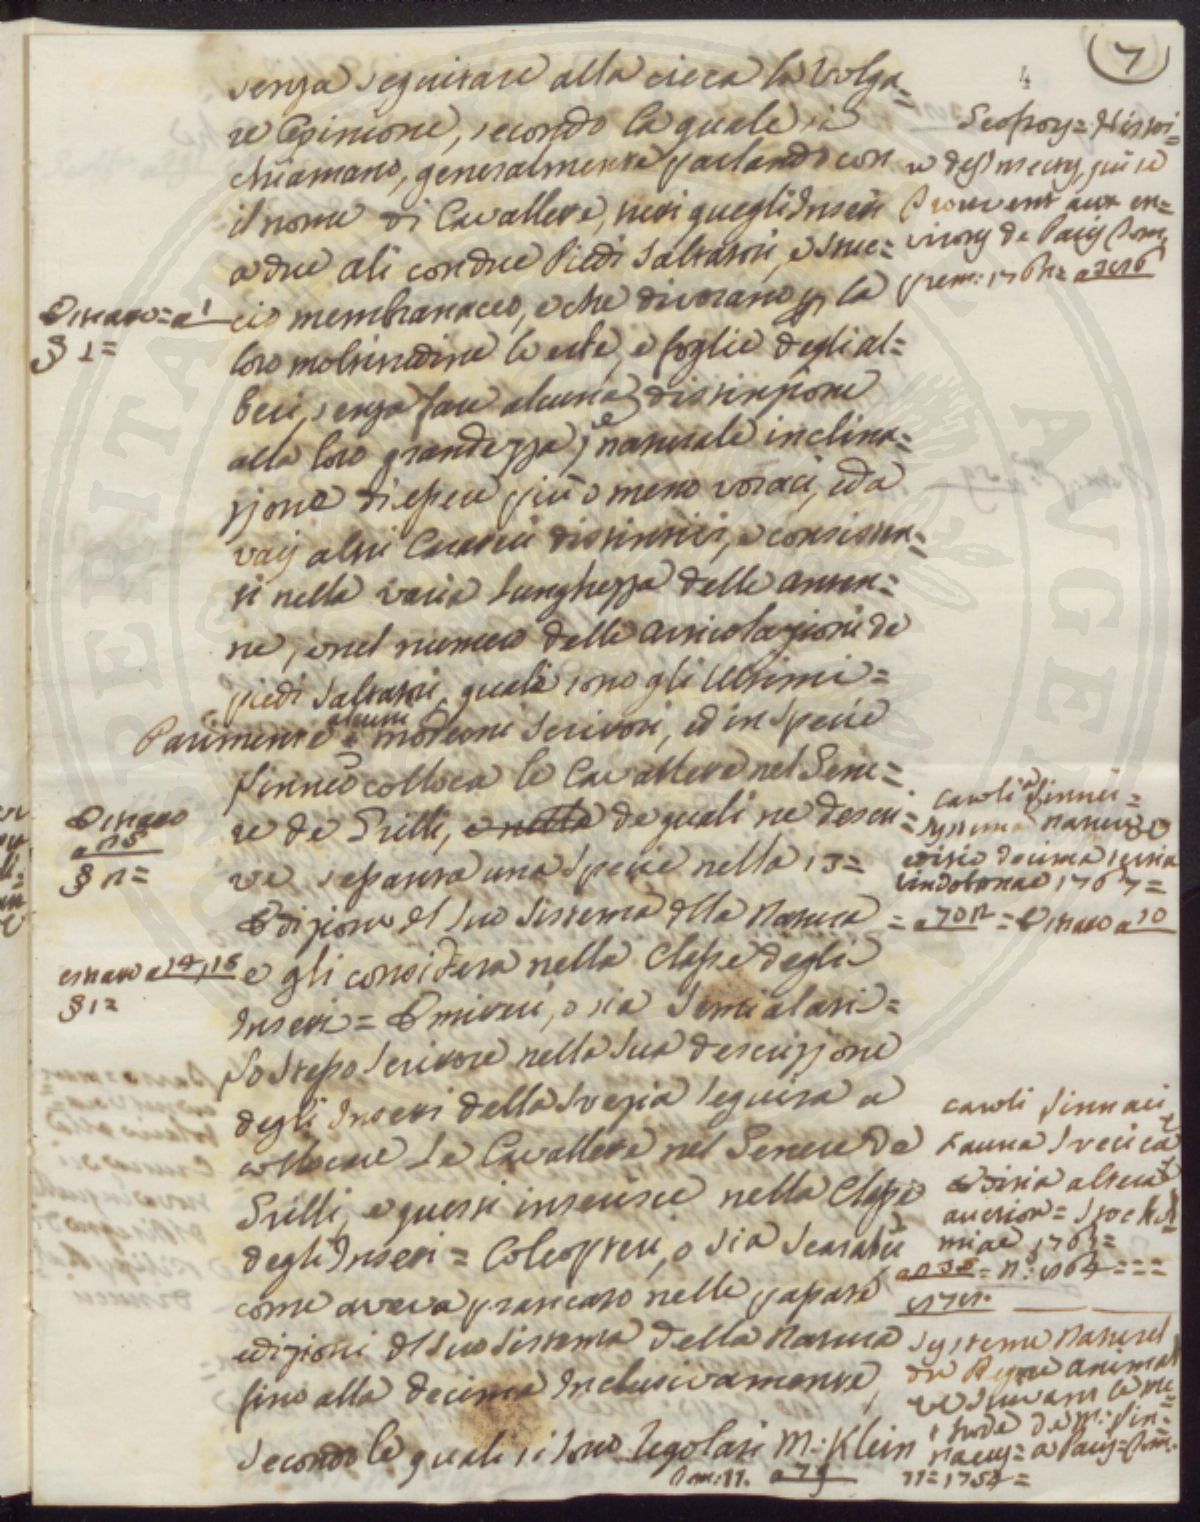 7
4
senza seguitare alla cieca la volga=
re Opinione, secondo la quale si
chiamano, generalmente parlando con
il nome di Cavallete, tutti quegli Insetti
a due ali con due Piedi Saltatori, e
cio membranaceo, e che divorano p la
loro moltitudine le erbe, e foglie degli al=
beri, senza fare alcuna distinzione
alla loro grandezza, e naturale inclina=
zione di essere più o meno voraci, ed a
varij altri Caratteri distintivi, e consisten=
ti nella varia Lunghezza delle Anten=
ne, e nel numero delle Articolazioni de
piedi Saltatori, quali sono gli Ultimi=
Parimente alcuni moderni Scrittori, ed in Specie
Linneo colloca le Cavallete nel Gene=
re de Grilli, e nella de quali ne descri=
ve separata una Specie nella 13=
Edizione del suo Sistema della Natura
e gli considera nella Classe degli
Insetti= Emitteri, o sia Semialati=
Lo Stesso Scrittore nella Sua descrizzione
degli Insetti della Svezia Seguita a
collocare Le Cavallete nel Genere de
Grilli, e questi inserisce nella Classe
degli Insetti= Coleopteri, o sia Scarabei
come aveva praticato nelle passate
edizioni del suo Sistema della Natura
fino alla decima Inclusivamente,
Secondo le quali si sono Regolati M: Klein
Tom: 11. a 79
Geofroy= Histoi=
re des Insectes, qui se
trouvent aux en=
virons de Paris Tom.
prem: 1762=
§ 1=
Caroli Linnei=
Systema Naturae
editio decima tertia
Vindobonae 1767=
= a 702 =
§ 2=
§ 1=
Caroli Linnaei
Fauna Svecica
Editio altera
auctior= Stockol
miae 1761=
Systeme Naturel
du Regne animal
suivant la me
thode de M: Lin=
naeus= a Paris= Tom.
11= 1754=